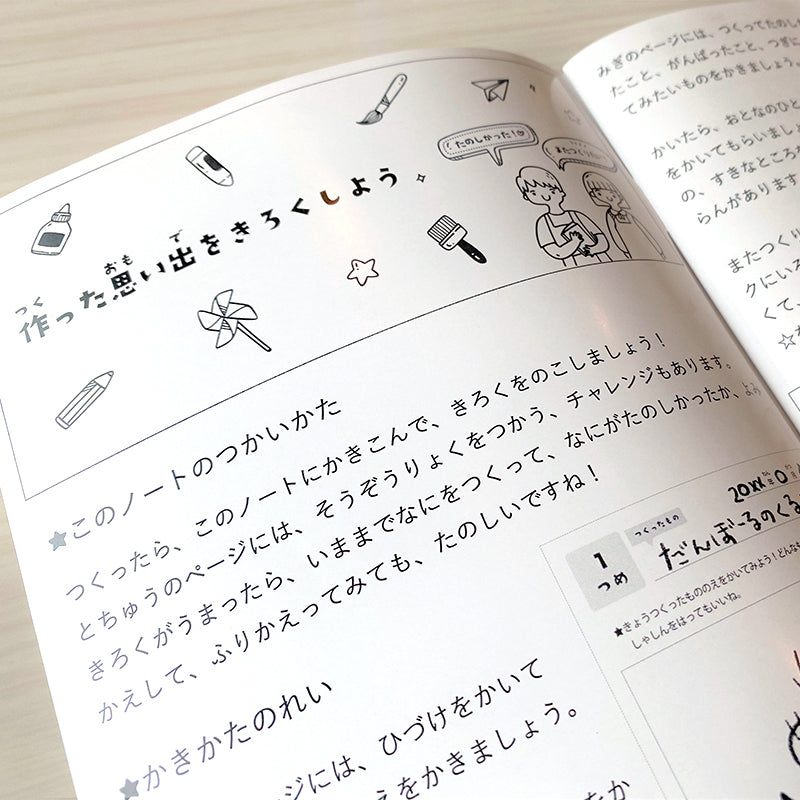 たのしかった！
またつくりたい
作った思い出をきろくしよう
つく
おも
で
★このノートのつかいかた
つくったら、このノートにかきこんで、きろくをのこしましょう！
とちゅうのページには、そうぞうりょくをつかう、チャレンジもあります。
きろくがうまったら、いままでなにをつくって、なにがたのしかったか、よみ
かえして、ふりかえってみても、たのしいですね！
★かきかたのれい
ージには、ひづけをかいて
えをかきましょう。
をか
1
つめ
つくったもの
20XX年0月
だんぼーるのくる
★きょうつくったもののえをかいてみよう！どんなも
しゃしんをはってもいいね。
みぎのページには、つくってたのし
たこと、がんばったこと、つぎに
てみたいものをかきましょう。
かいたら、おとなのひと
をかいてもらいまし
の、すきなところ
らんがあります
またつくり
クにいろ
くて、